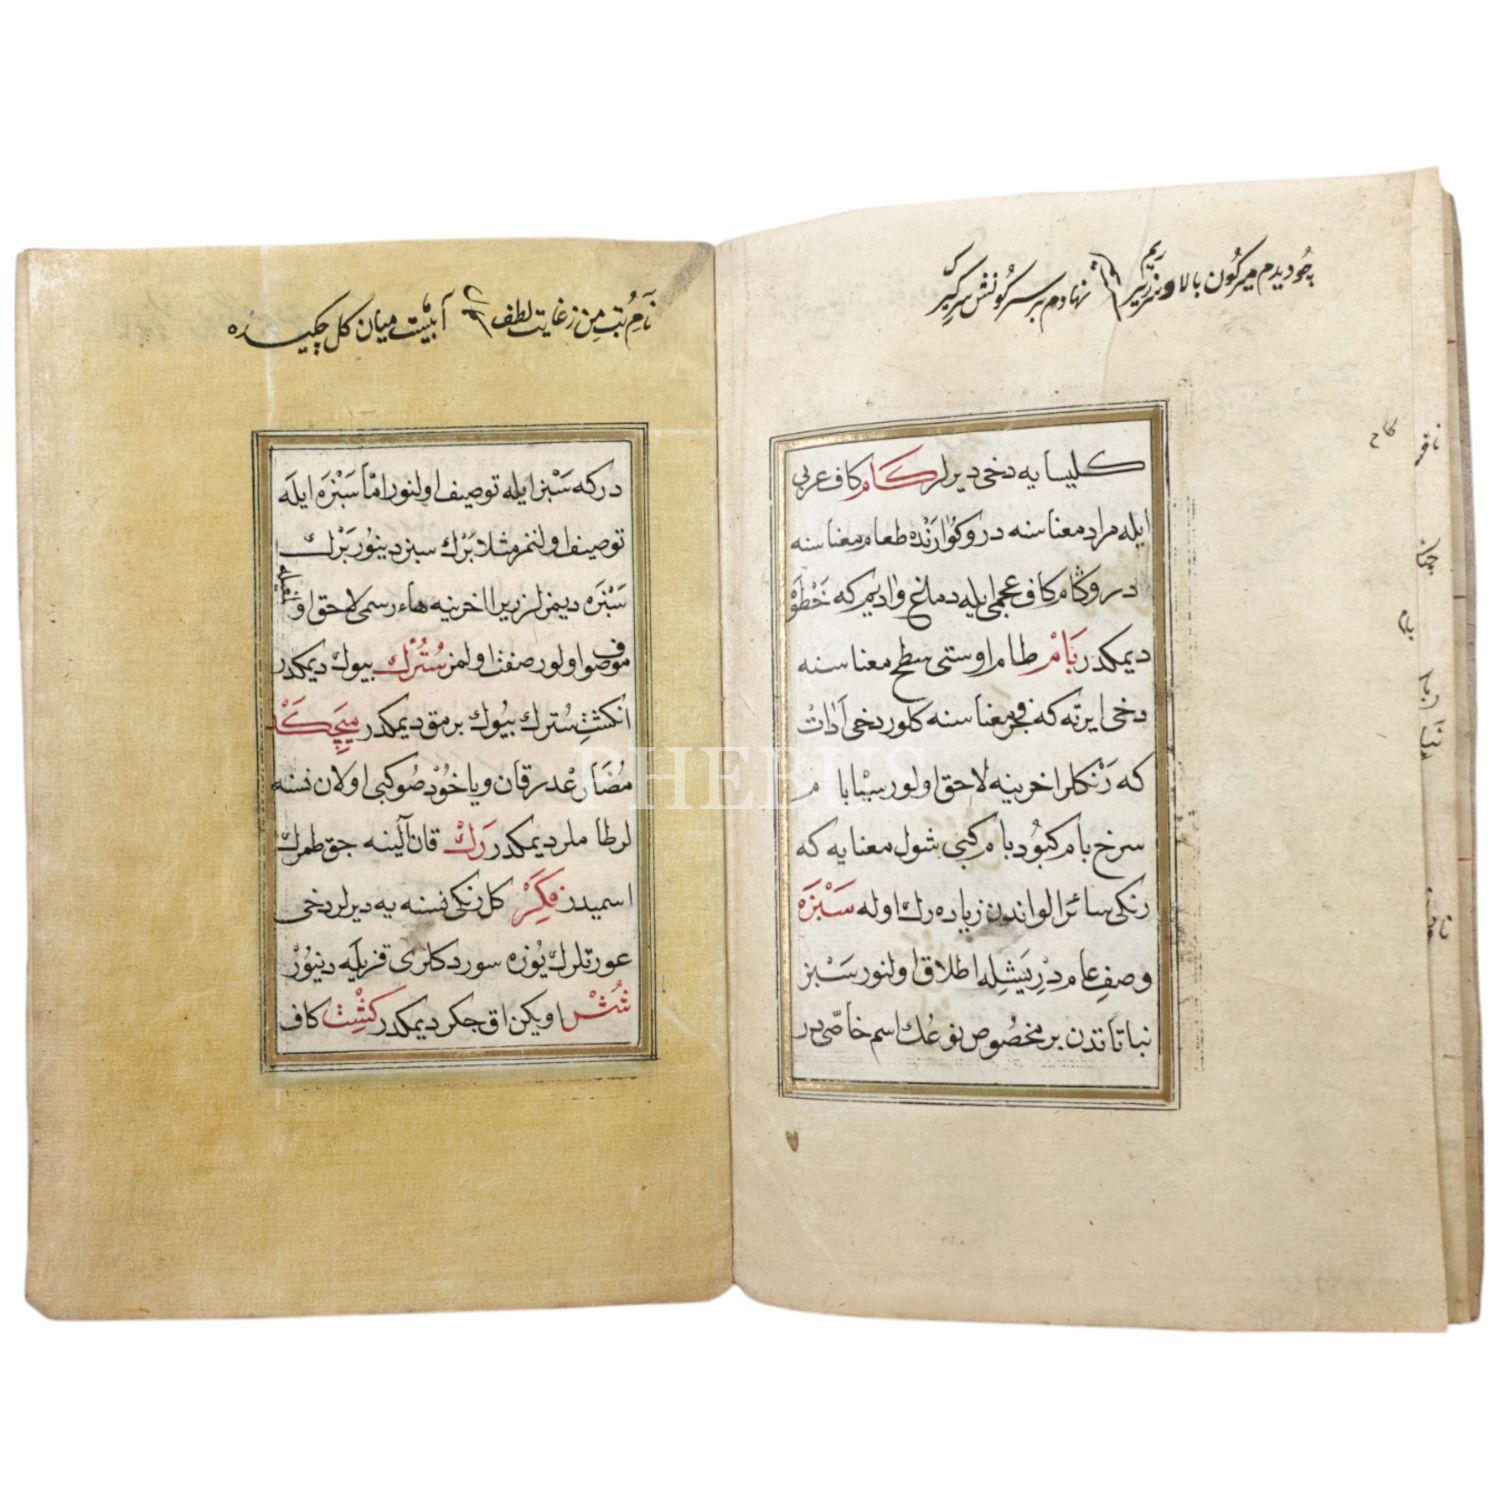 چو دیدم میرکون بالا و زیر
نهادم بر سر کونش سر کیر
کلیسایه دخی دیرلر کام کاف عربی
ایله مراد معناسنه در و کوارنده طعام معناسنه
در و کام کاف عجمی ایله دماغ وادیم که خطوه
دیمکدر بام طام اوستی سطح معناسنه
دخی ایرته که فجر معناسنه کلور دخی ادات
که رنکلر اخرینه لاحق اولور سیابام
سرخ بام کبود بام کبی شول معنایه که
رنکی سائر الواندن زیاده رك اوله سبزه
وصف عام در یشله اطلاق اولنور سبز
نباتاتدن بر مخصوص نوعك اسم خاصی در
نام بت من ز غایت لطف
آبیست میان کل چکیده
در که سبز ایله توصیف اولنور اما سبزه ایله
توصیف اولنمز مثلا برك سبز دینور برك
سبزه دیمزلر زیرا اخرینه هاء رسمی لاحق او
موصوف اولور صفت اولمز سترك بیوك دیمکدر
انکشت سترك بیوك برمق دیمکدر میچکد
مضارعدر قان و یا خود صو کبی اولان نسنه
لر طاملر دیمکدر رك قان آلینه جق طمرك
اسمیدر کل رنکی نسنه یه دیرلر دخی
عورتلرك یوزه سوردکلری قزیله دینور
شش اویکن اق جکر دیمکدر کشت کاف
PHEBUS